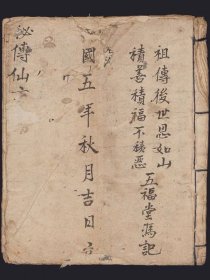 祖傳後世恩如山
積善積福不積惡
五福堂馮記
國五年秋月吉日立
秘傳仙